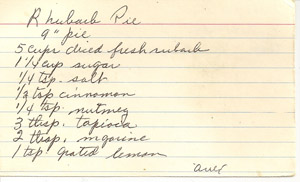 Rhubarb Pie
9" pie
5 cups diced fresh rubarb
1 1/4 cup sugar
1/4 tsp. salt
1/2 tsp cinnamon
1/4 tsp. nutmeg
3 tbsp. tapioca
2 tbsp.
1 tsp grated lemon
over